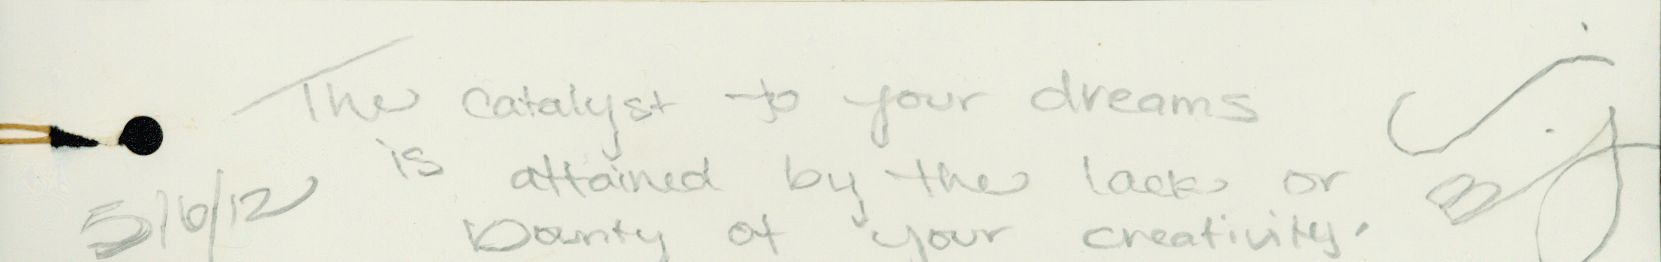 The catalyst to your dreams
is attained by the lack or
5/6/12
bounty of your creativity.